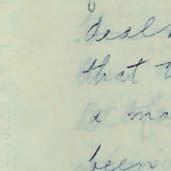 deals
that
a
been